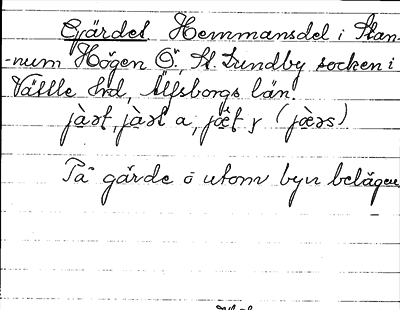 Gjärdet Hemmansdel i Stan-
-num Högen Ö., St. Lundby socken i
Vättle hd, Älfsborgs län.
jàṣt, jàṣt a, jæ̀t y (jæ̀rs)
På gärde ö utom byn belägen